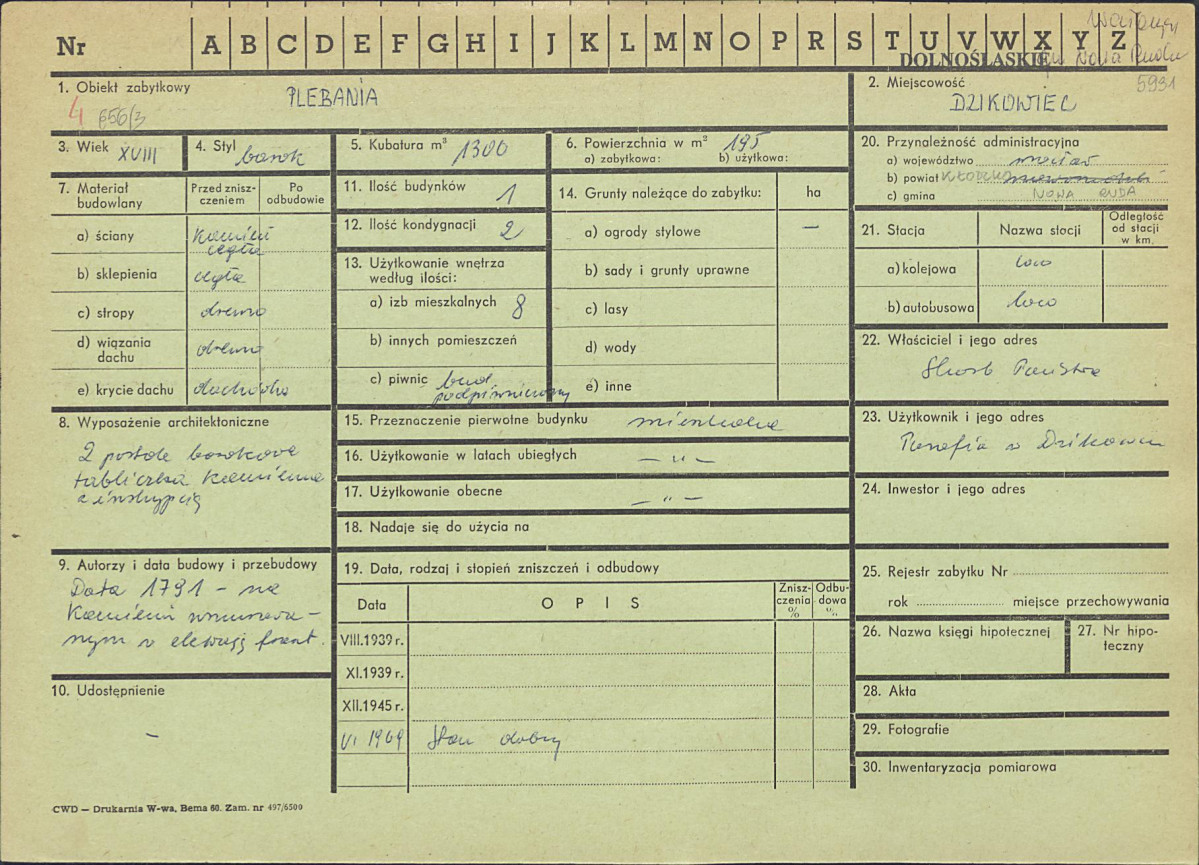 Nr A B C D E F G H I J K L M N O P R S T U V W X Y Z
DOLNOŚLĄSKIE
Nowa Ruda
1. Obiekt zabytkowy
PLEBANIA
4 656/3
2. Miejscowość
5931
DZIKOWIEC
3. Wiek XVIII
4. Styl barok
5. Kubatura m³ 1300
6. Powierzchnia w m² 195
a) zabytkowa: b) użytkowa:
20. Przynależność administracyjna
a) województwo wrocław
b) powiat KŁODZKO
c) gmina NOWA RUDA
7. Materiał budowlany
Przed zniszczeniem
Po odbudowie
a) ściany kamień
cegła
b) sklepienia cegła
c) stropy drewno
d) wiązania dachu drewno
e) krycie dachu dachówka
11. Ilość budynków 1
12. Ilość kondygnacji 2
13. Użytkowanie wnętrza
według ilości:
a) izb mieszkalnych 8
b) innych pomieszczeń
c) piwnic bud
podpiwniczony
14. Grunty należące do zabytku: ha
a) ogrody stylowe —
b) sady i grunty uprawne
c) lasy
d) wody
e) inne
21. Stacja Nazwa stocji
Odległość
od stacji
w km.
a) kolejowa loco
b) autobusowa loco
22. Właściciel i jego adres
Skarb Państwa
8. Wyposażenie architektoniczne
2 portale barokowe
tabliczka kamienna
z inskrypcją
15. Przeznaczenie pierwotne budynku mieszkalne
16. Użytkowanie w latach ubiegłych — " —
17. Użytkowanie obecne — " —
18. Nadaje się do użycia na
23. Użytkownik i jego adres
Parafia w Dzikowcu
24. Inwestor i jego adres
9. Autorzy i data budowy i przebudowy
Data 1791 – na
kamieniu wmurowa-
nym w elewację front.
10. Udostępnienie
–
19. Data, rodzaj i stopień zniszczeń i odbudowy
Data O P I S
Znisz-
czenia
%
Odbu-
dowa
%
VIII.1939 r.
XI.1939 r.
XII.1945 r.
VI 1969 Stan dobry
25. Rejestr zabytku Nr
rok miejsce przechowywania
26. Nazwa księgi hipotecznej
27. Nr hipo-
teczny
28. Akta
29. Fotografie
30. Inwentaryzacja pomiarowa
CWD — Drukarnia W-wa, Bema 60. Zam. nr 497/6500